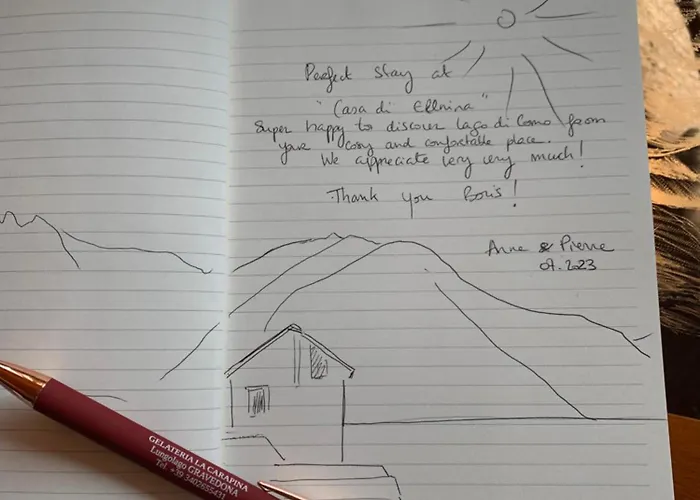 Perfect stay at
"Casa di Ellnina"
Super happy to discover Lago di Como from
your cosy and confortable place.
We appreciate very very much!
Thank you Boris!
Anne & Pierre
07.2023
GELATERIA LA CARAPINA
Lungolago GRAVEDONA
Tel. +39 3402655431